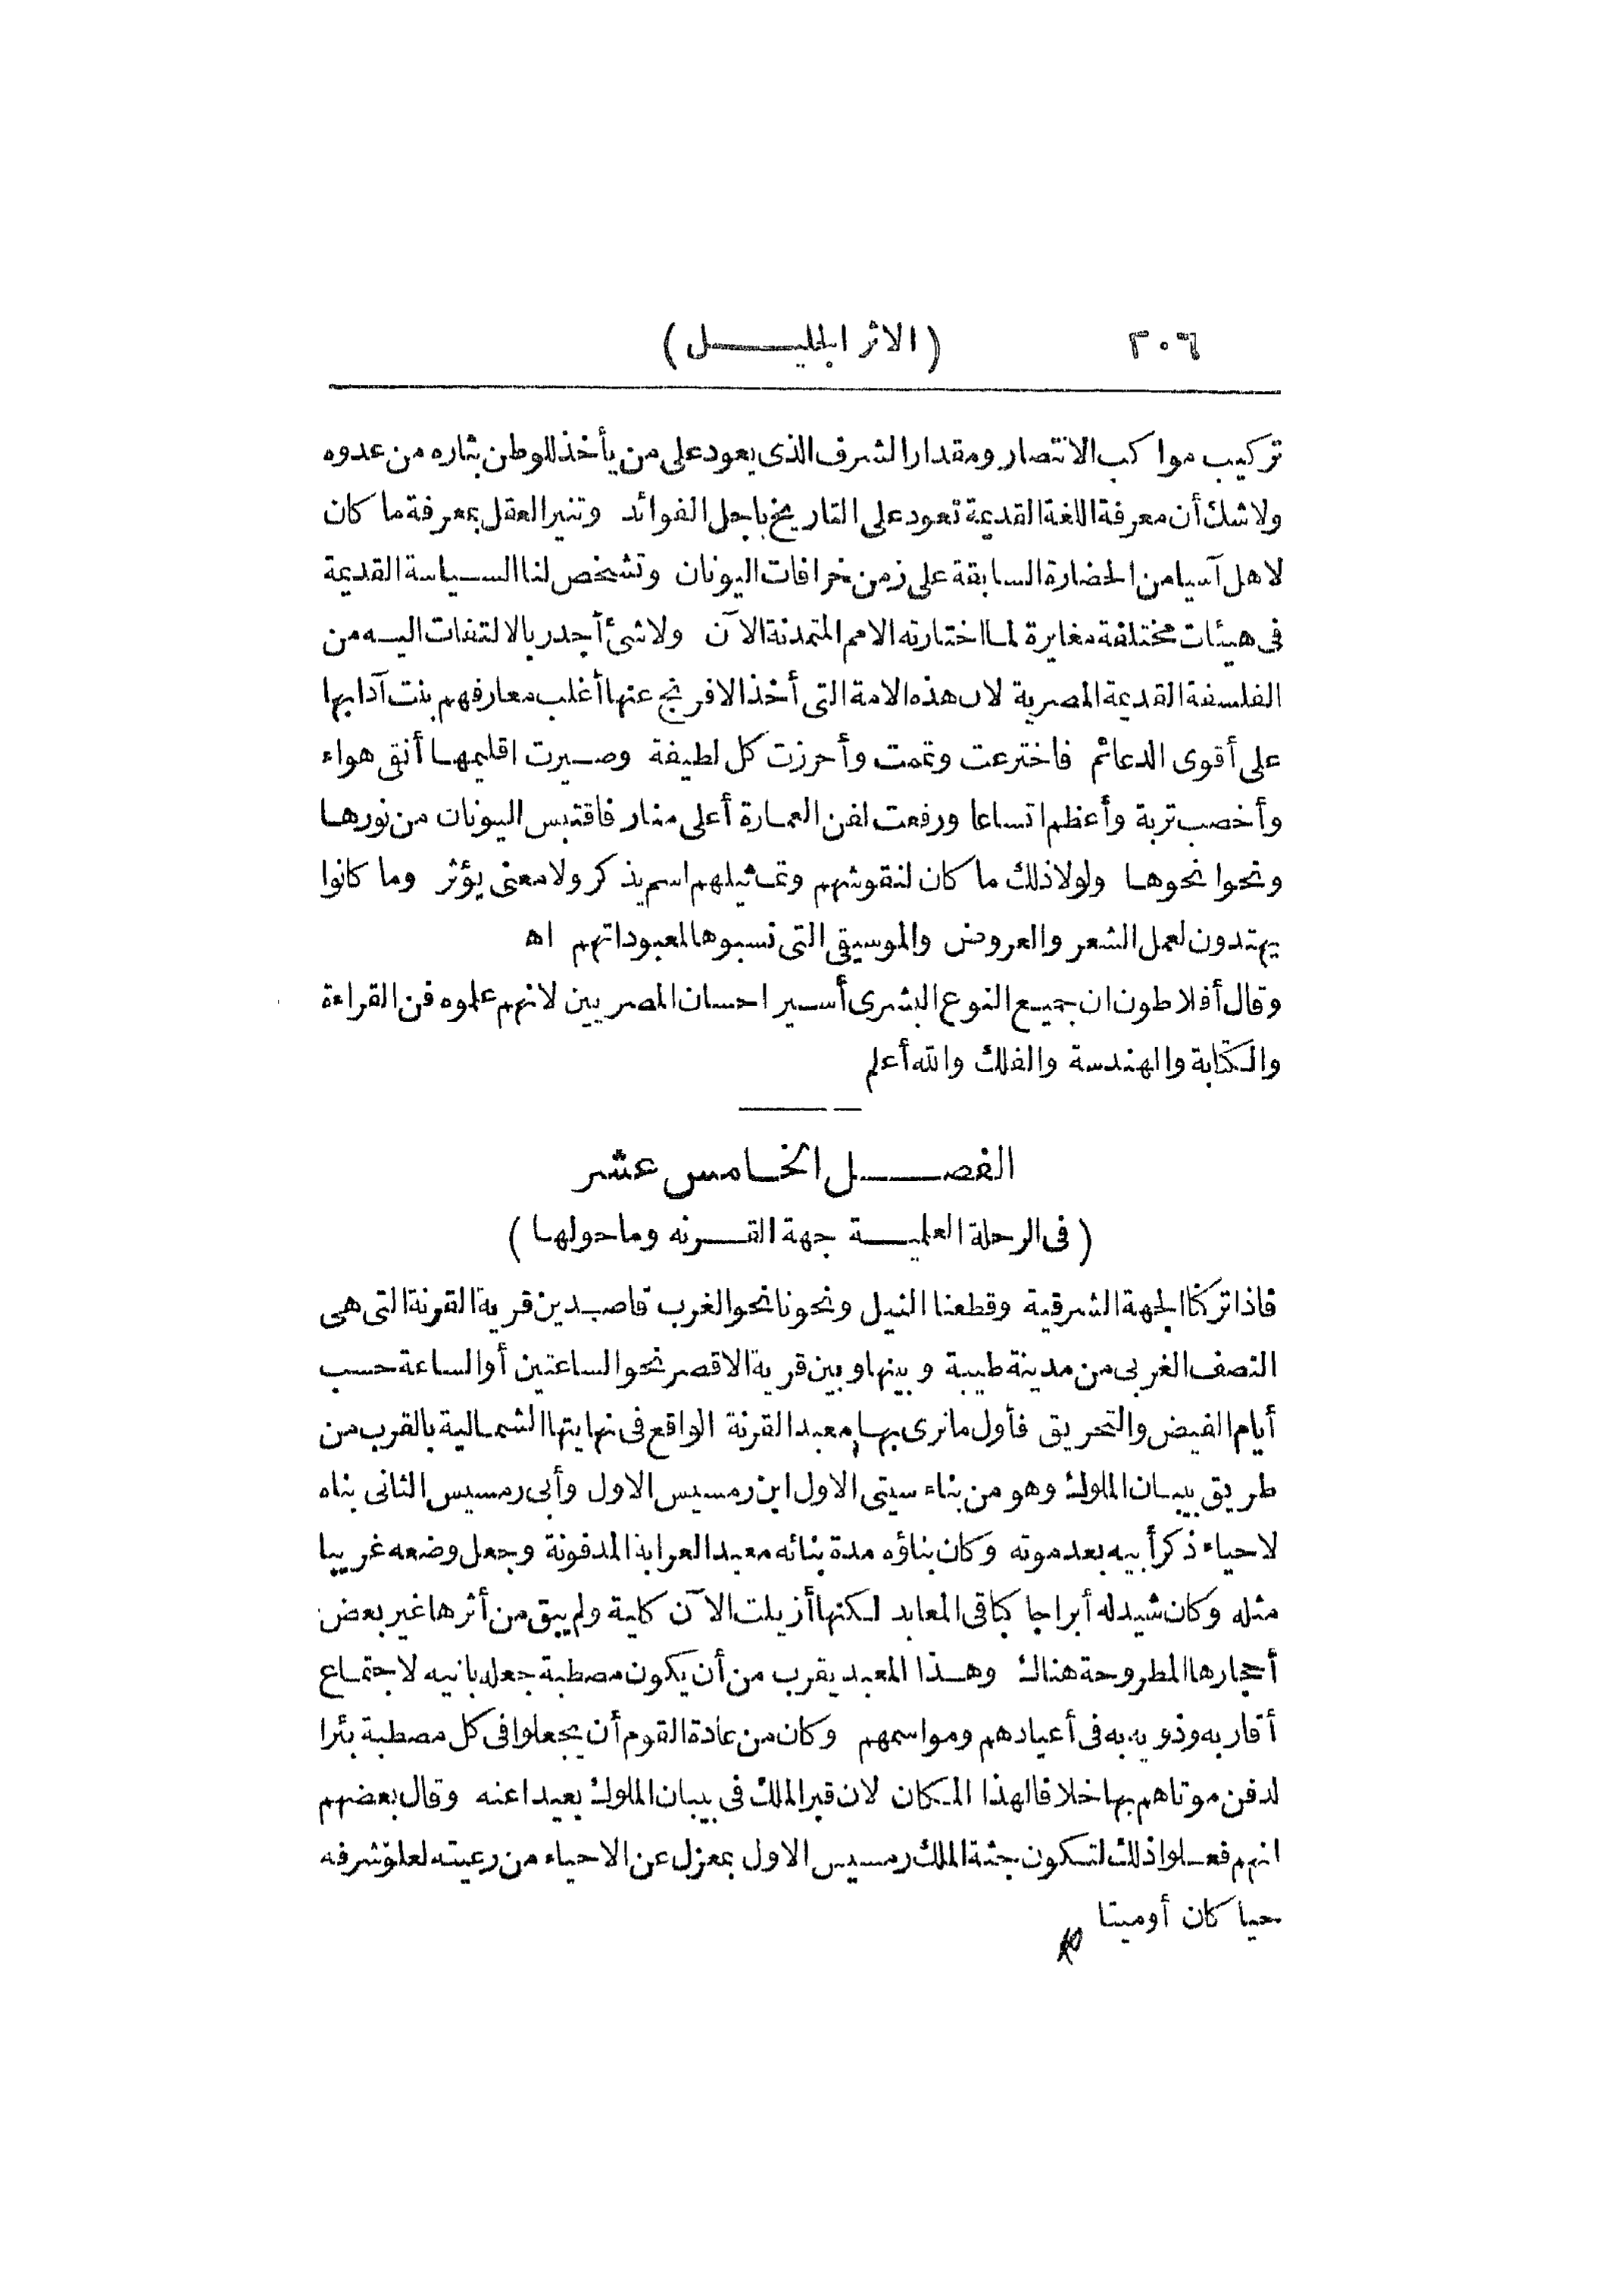 ٣٠٦ (الاثر الجليل)
تركيب مواكب الانتصار ومقدار الشرف الذى يعود على من يأخذ للوطن بثاره من عدوه
ولاشك أن معرفة اللغة القديمة تعود على التاريخ باجل الفوائد وتنير العقل بمعرفة ما كان
لاهل آسيا من الحضارة السابقة على زمن خرافات اليونان وتشخص لنا السياسة القديمة
فى هيئات مختلفة مغايرة لما اختارته الامم المتمدنة الآن ولاشئ أجدر بالالتفات اليه من
الفلسفة القديمة المصرية لان هذه الامة التى أخذ الافرنج عنها أغلب معارفهم بنت آدابها
على أقوى الدعائم فاخترعت وتممت وأحرزت كل لطيفة وصيرت اقليمها أنقى هواء
وأخصب تربة وأعظم اتساعا ورفعت لفن العمارة أعلى منار فاقتبس اليونان من نورها
ونحوا نحوها ولولا ذلك ما كان لنقوشهم وتماثيلهم اسم يذكر ولا معنى يؤثر وما كانوا
يهتدون لعمل الشعر والعروض والموسيقى التى نسبوها لمعبوداتهم اه
وقال أفلاطون ان جميع النوع البشرى أسير احسان المصريين لانهم علموه فن القراءة
والكتابة والهندسة والفلك والله أعلم
الفصل الخامس عشر
(فى الرحلة العلية جهة القرنه وماحولها)
فاذا تركنا الجهة الشرقية وقطعنا النيل ونحونا نحو الغرب قاصدين قرية القرنة التى هى
النصف الغربى من مدينة طيبة وبينها وبين قرية الاقصر نحو الساعتين أو الساعة حسب
أيام الفيض والتحريق فأول مانرى بها معبد القرنة الواقع فى نهايتها الشمالية بالقرب من
طريق بيبان الملوك وهو من بناء سيتى الاول ابن رمسيس الاول وأبى رمسيس الثانى بناه
لاحياء ذكر أبيه بعد موته وكان بناؤه مدة بنائه معبد العرابة المدفونة وجعل وضعه غريبا
مثله وكان شيد له أبراجا كباقى المعابد لكنها أزيلت الآن كلية ولم يبق من أثرها غير بعض
أحجارها المطروحة هناك وهذا المعبد يقرب من أن يكون مصطبة جعله بانيه لاجتماع
أقاربه وذويه به فى أعيادهم ومواسمهم وكان من عادة القوم أن يجعلوا فى كل مصطبة بئرا
لدفن موتاهم بها خلافا لهذا المكان لان قبر الملك فى بيبان الملوك بعيدا عنه وقال بعضهم
انهم فعلوا ذلك لتكون جثة الملك رمسيس الاول بمعزل عن الاحياء من رعيته لعلوّ شرفه
حيا كان أوميتا